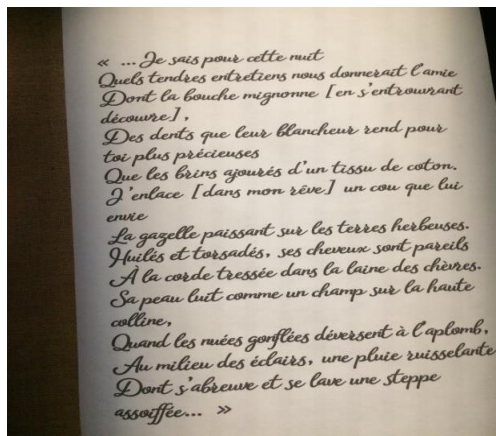 « ... Je sais pour cette nuit
Quels tendres entretiens nous donnerait l'amie
Dont la bouche mignonne [en s'entrouvrant
découvre],
Des dents que leur blancheur rend pour
toi plus précieuses
Que les brins ajourés d'un tissu de coton.
J'enlace [dans mon rêve] un cou que lui
envie
La gazelle paissant sur les terres herbeuses.
Huilés et torsadés, ses cheveux sont pareils
À la corde tressée dans la laine des chèvres.
Sa peau luit comme un champ sur la haute
colline,
Quand les nuées gonflées déversent à l'aplomb,
Au milieu des éclairs, une pluie ruisselante
Dont s'abreuve et se lave une steppe
assoiffée... »